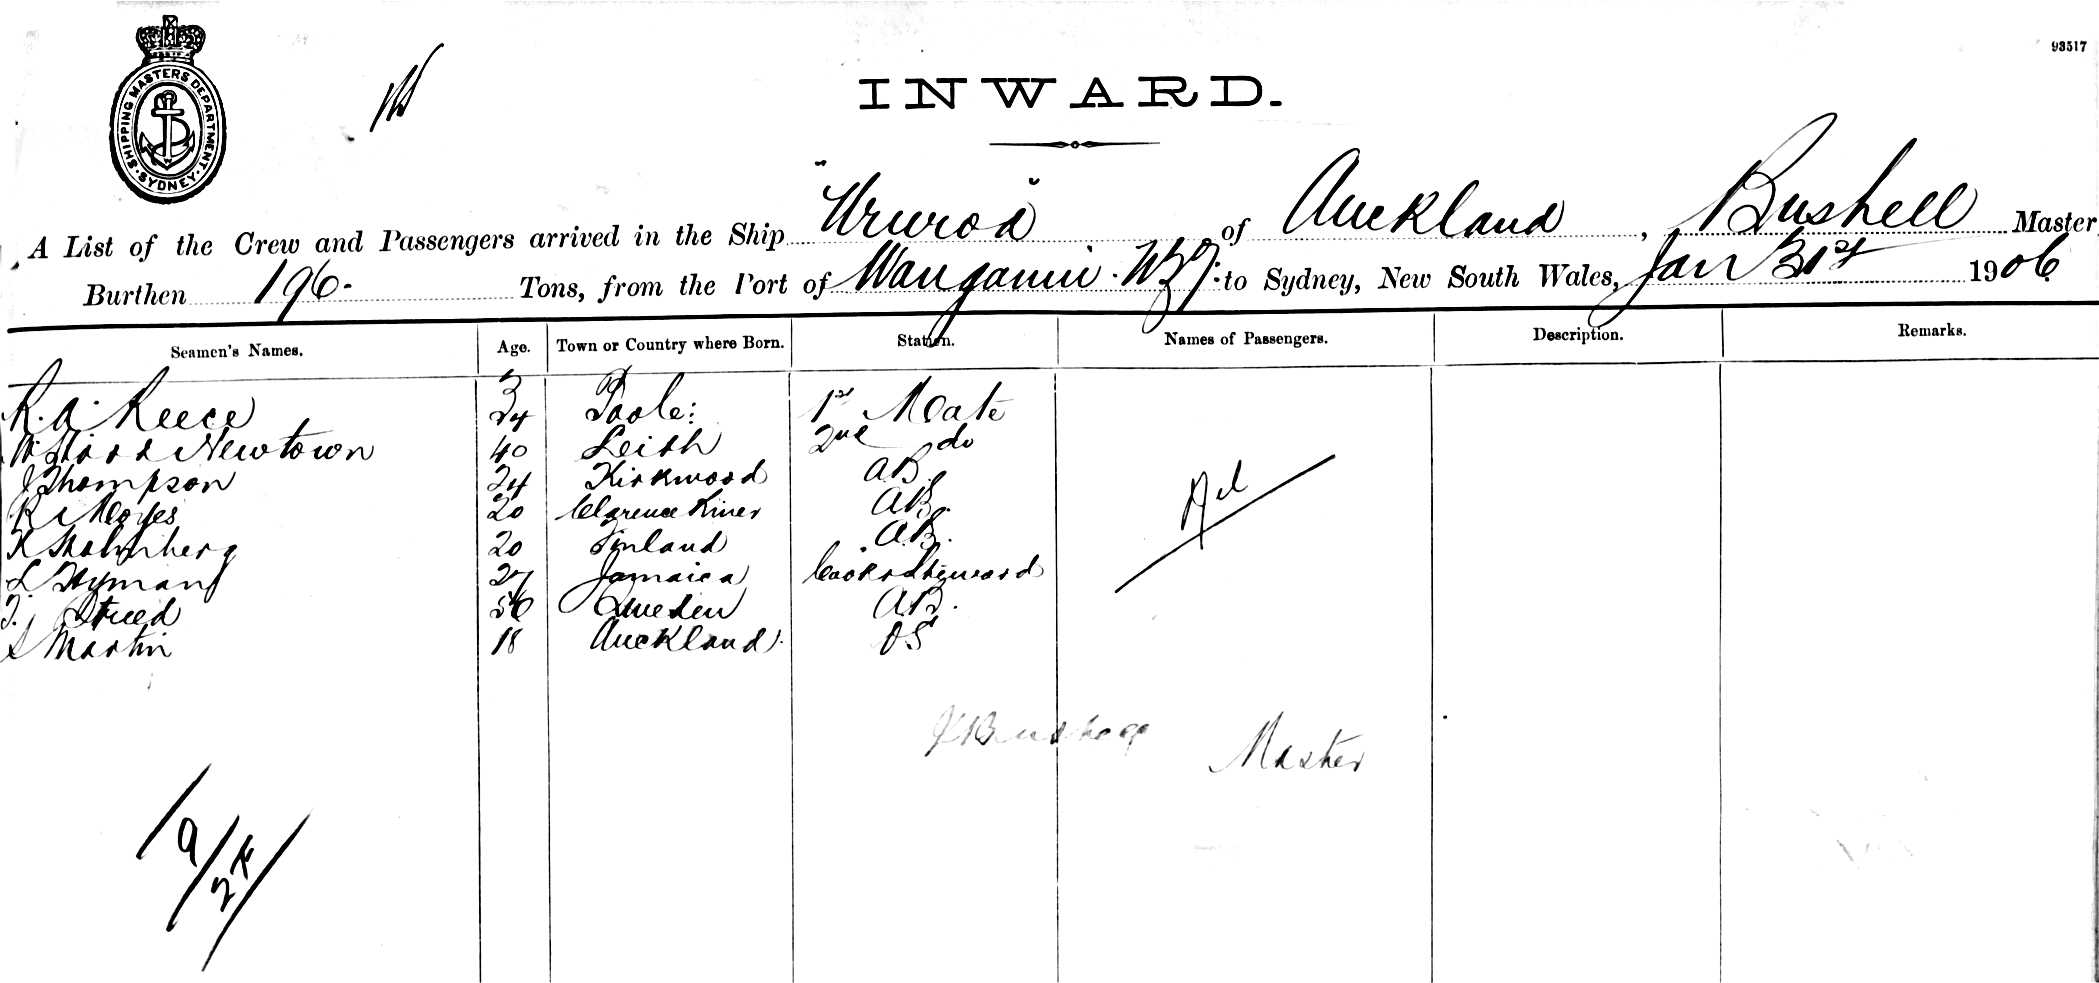 93517
SHIPPING MASTERS DEPARTMENT. SYDNEY
INWARD.
A List of the Crew and Passengers arrived in the Ship "Wuroa" of Auckland, Bushell Master
Burthen 196. Tons, from the Port of Wanganui. to Sydney, New South Wales, Jan 31st 1906
Seamen's Names. Age. Town or Country where Born. Station. Names of Passengers. Description. Remarks.
R. A. Reece Poole: 1st Mate
Newtown 40 Leith 2nd do
J Thompson 24 Kirkwood AB.
R Moyes 20 Clarence River AB.
K Holmberg 20 Finland AB.
L Hyman 27 Jamaica Cook & Steward
56 Sweden AB.
S Martin 18 Auckland. OS
Bushell Master